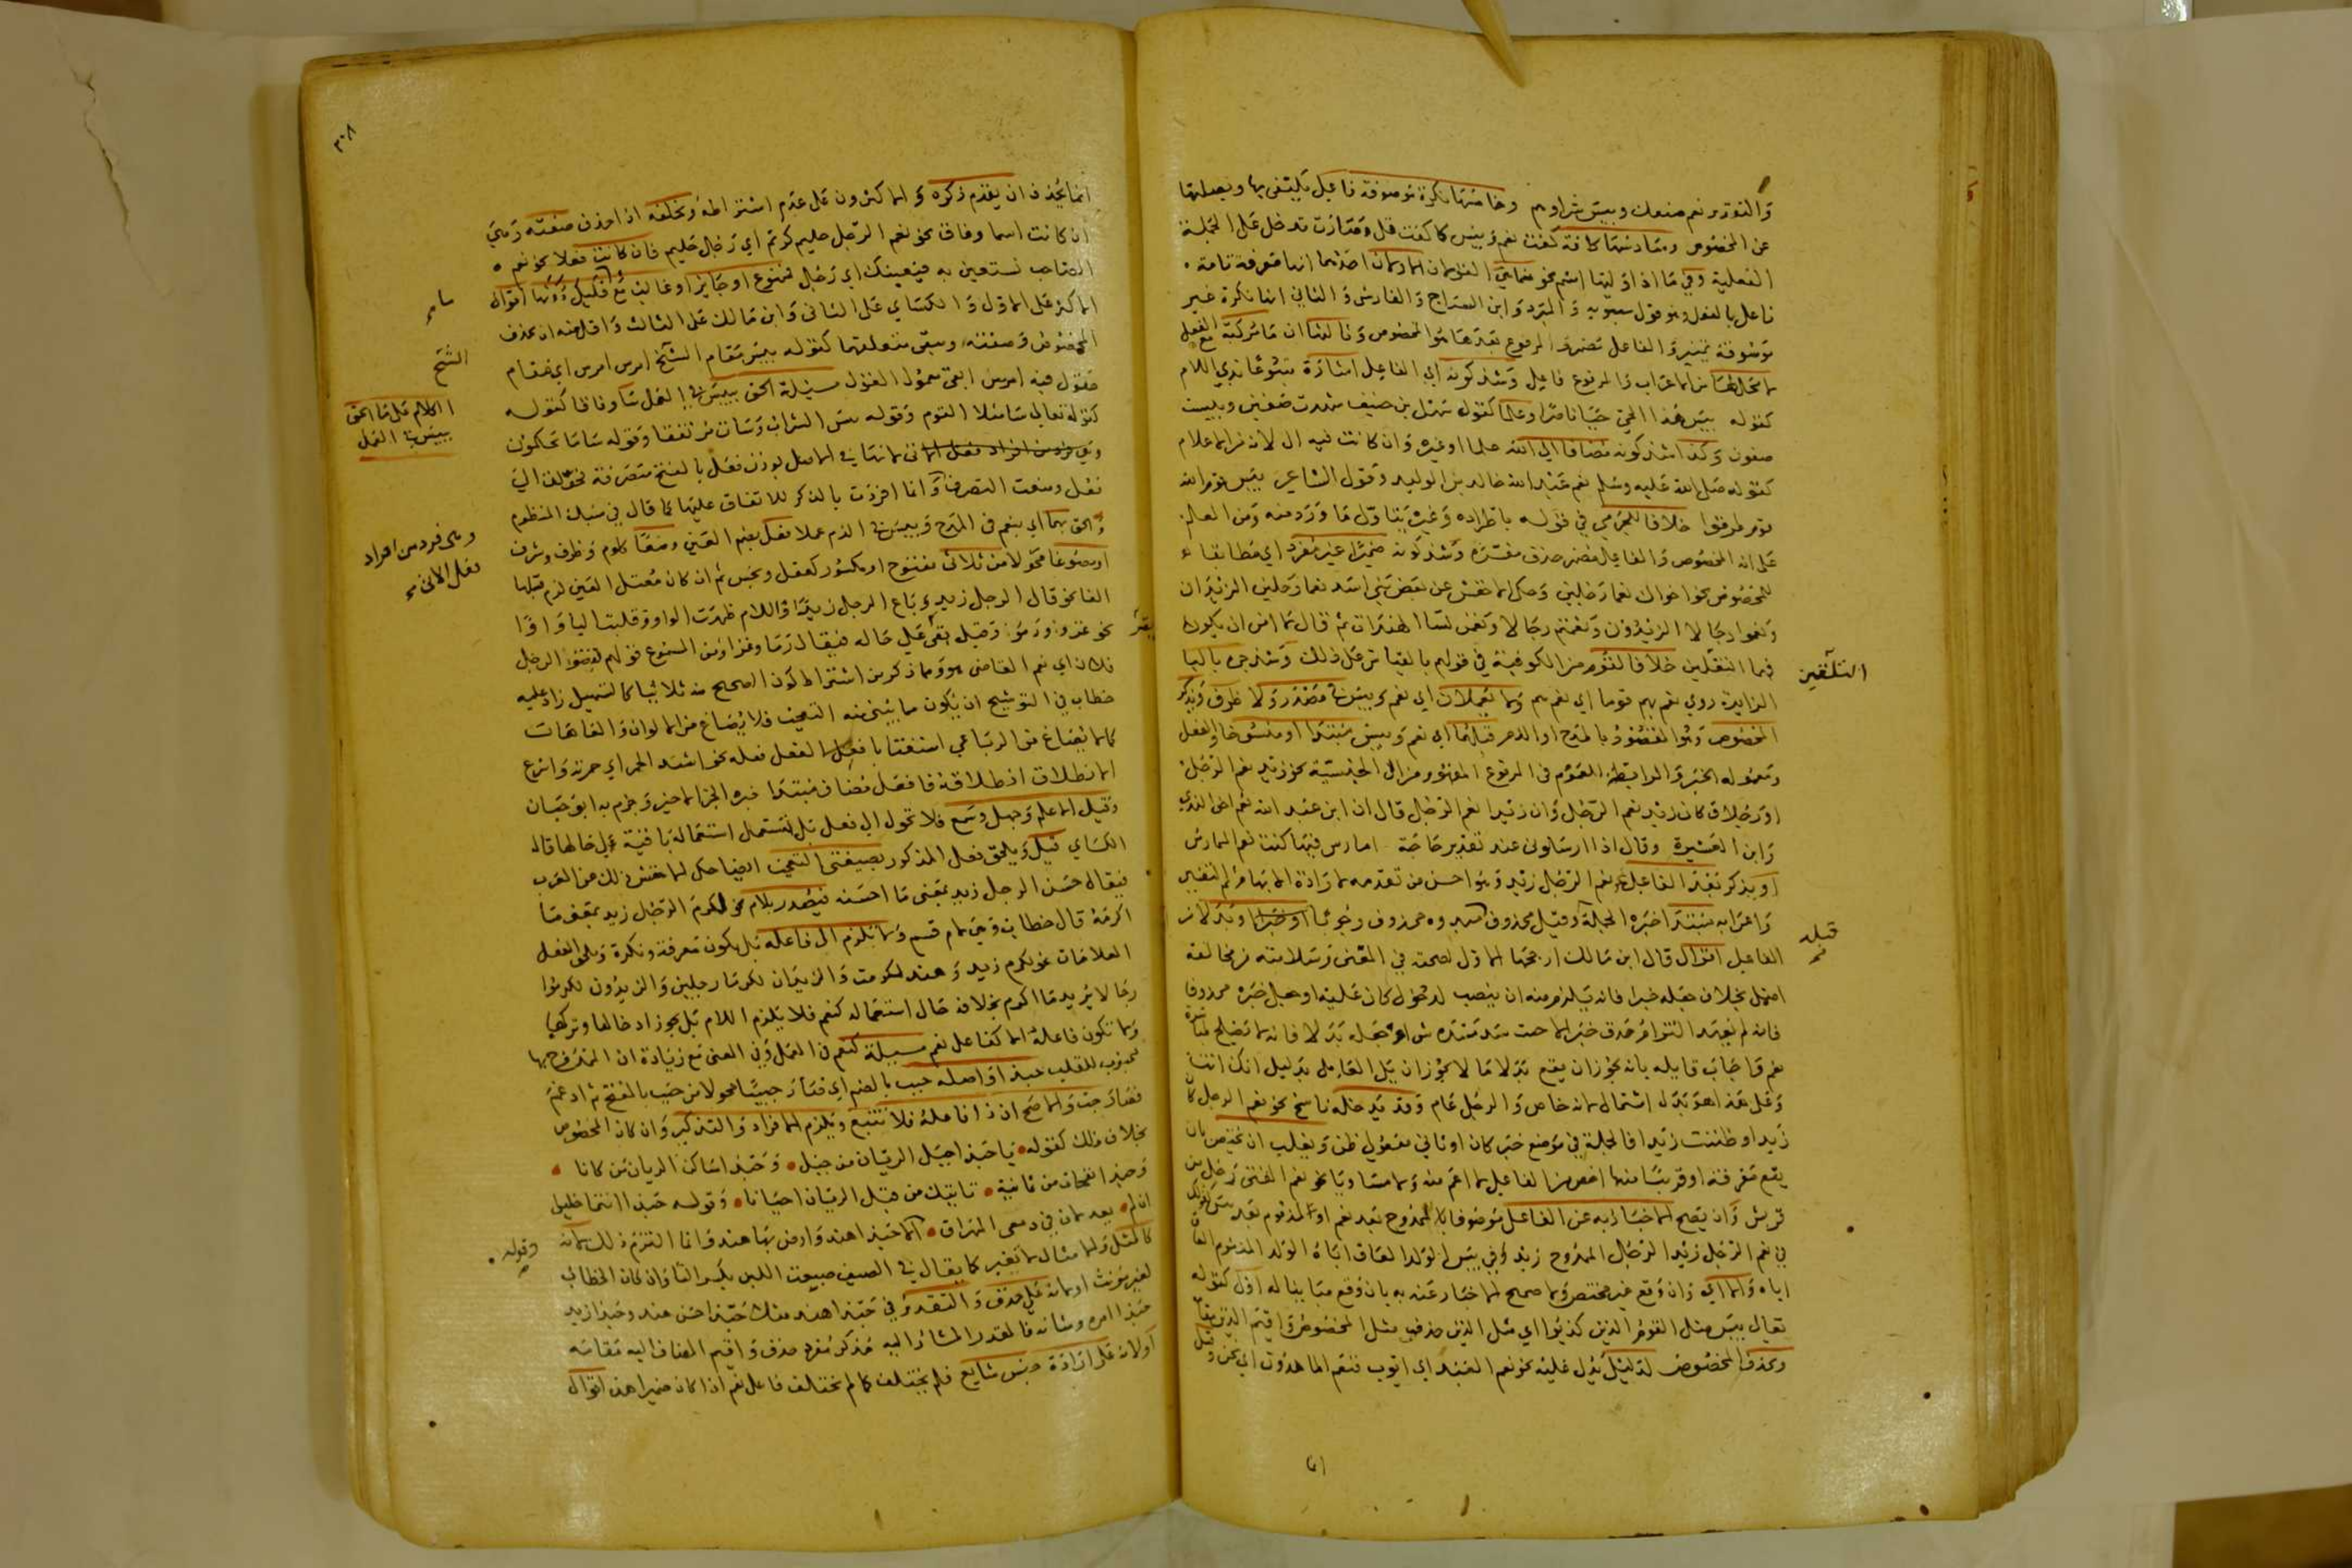 والتقدير نعم صنعك وبيس شراوهم وخامسها نكرة موصوفة فاعل يكتفى بها وبصلتها
عن المخصوص وسادسها كافة كفت نعم وبيس كما كفت قل وصارت تدخل على الجملة
الفعلية وفي ما اذا وليها اسم نحو فنعما هي اقوال احدها انها معرفة تامة
فاعل بالفعل وهو قول سيبويه والمبرد وابن السراج والفارسي والثاني انها نكرة غير
موصوفة تمييز والفاعل مضمر والمرفوع بعدها هو المخصوص وثالثها ان ما مركبة مع الفعل
لا محل لها من الاعراب والمرفوع فاعل وشذ كونه اي الفاعل اشارة متبوعا بذي اللام
كقوله بيس هذا الحي حيا ناصرا وعلما كقول سهل بن حنيف شهدت صفين وبيست
صفون وكذا شذ كونه مضافا الى الله علما او غيره وان كانت فيه ال لانه من الاعلام
كقوله صلى الله عليه وسلم نعم عبد الله خالد بن الوليد وقول الشاعر بيس قوم الله
قوم طرقوا خلافا للجرمي في قوله باطراده وغيره يتاول ما ورد منه ومن العلم
على انه المخصوص والفاعل مضمر حذف مفسره وشذ كونه ضميرا غير مفرد اي مطابقا
للمخصوص نحو اخواك نعما رجلين وحكى الاخفش عن بعض بني اسد نعما رجلين الزيدان
ونعموا رجالا الزيدون ونعمتم رجالا ونعمن نسا الهندات ثم قال لا امن ان يكونا
فهما التلقين خلافا لقوم من الكوفيين في قولهم بالقياس على ذلك وشذ جره بالبا
التلقين
الزايدة روي نعم بهم قوما اي نعم هم ولا يعملان اي نعم وبيس في مصدر ولا ظرف ويذكر
المخصوص وهو المقصود بالمدح او الذم قبلهما اي نعم وبيس مبتدا او منسوخا والفعل
ومعموله الخبر والرابط العموم في المرفوع المفهوم من ال الجنسية نحو زيد نعم الرجل
او رجلا وكان زيد نعم الرجل وان زيدا نعم الرجل قال ان ابن عبد الله نعم اخو الندي
وابن العشيرة وقال اذا ارسلوني عند تعذير حاجة امارس فيها كنت نعم الممارس
او يذكر بعد الفاعل نحو نعم الرجل زيد وهو احسن من تقدمه لارادة الابهام ثم التفسير
واعرابه مبتدا خبره الجملة وقيل محذوف او خبر محذوف وجوبا او بدلا من
قبله
الفاعل اقوال قال ابن مالك ارجحها الاول لصحته في المعنى وسلامته من مخالفة
اصل بخلاف جعله خبرا فانه يلزم منه ان ينصب لدخول كان عليه او جعل خبره محذوفا
فانه لم يعهد التزام حذف خبر الا حيث سد مسده شي او جعله بدلا فانه لا يصلح لمباشرة
نعم واجاب قايله بانه يجوز ان يقع بدلا ما لا يجوز ان يلي العامل بدليل انك انت
وعلى هذا هو بدل اشتمال لانه خاص والرجل عام وقد يدخله ناسخ نحو نعم الرجل كان
زيد او ظننت زيدا فالجملة في موضع خبر كان او ثاني مفعولي ظن ويغلب ان يختص بان
يقع معرفة او قريبا منها اخص من الفاعل لا اعم منه ولا مساويا نحو نعم الفتى رجل من
قريش وان يصح الاخبار به عن الفاعل موصوفا بالممدوح بعد نعم او المذموم بعد بيس كقولك
في نعم الرجل زيد الرجل الممدوح زيد وفي بيس الولد العاق اباه الولد المذموم العاق
اباه والا اي وان وقع غير مختص ولا صحيح الاخبار عنه به بان وقع مباينا له اول كقوله
تعالى بيس مثل القوم الذين كذبوا اي مثل الذين حذف مثل المخصوص واقيم الذين مقامه
ويحذف المخصوص لدليل يدل عليه نحو نعم العبد اي ايوب فنعم الماهدون اي نحن وقيل
٣٠٨
انما يحذف ان يقدم ذكره والاكثرون على عدم اشتراطه وتخلفه اذا حذف صفته وهي
ان كانت اسما وفاقا نحو نعم الرجل حليم كريم اي رجل حليم فان كانت فعلا نحو نعم
الصاحب تستعين به فيعينك اي رجل فممنوع او جايز او غالب مع قليل دونها اقوال
الاكثر على الاول والكسائي على الثاني وابن مالك على الثالث واقل منه ان يحذف
المخصوص وصفته ويبقى متعلقهما كقوله بيس مقام الشيخ امرس امرس اي مقام
الشيخ
مقول فيه امرس ابقى معمول القول مسيلة الحق ببيس في العمل سا وفاقا كقوله
الكلام على ما الحق ببيس في العمل
كقوله تعالى سا مثلا القوم وقوله بيس الشراب وسات مرتفقا وقوله سا ما يحكمون
وهي فرد من افراد فعل الاتي لانها في الاصل بوزن فعل بالفتح متصرفة فحولت الى
وهي فرد من افراد فعل الاتي
فعل ومنعت التصرف وانما افردت بالذكر للاتفاق عليها كما قال في سبك المنظوم
والحق بهما اي بنعم في المدح وبيس في الذم عملا فعل بضم العين وضعا كلوم وظرف وشرف
او مصوغا محولا من ثلاثي مفتوح او مكسور كعقل ونجس ثم ان كان معتل العين لزم قلبها
الفا نحو قال الرجل زيد وباع الرجل زيد او اللام ظهرت الواو وقلبت اليا واوا
نحو غزو ورمو وقيل يقر على حاله فيقال رمى وغزا ومن المسموع قولهم لقضو الرجل
يقر
فلان اي نعم القاضي هو وما ذكر من اشتراط كون الصحيح منه ثلاثيا كالتسهيل زاد عليه
خطاب في التوشيح ان يكون مما يبنى منه التعجب فلا يصاغ من الالوان والعاهات
كما لا يصاغ من الرباعي استغنا بافعل الفعل فعله نحو اشد الحمر اي حمرته واسرع
الانطلاق انطلاقه فافعل مضاف مبتدا خبره الجزا الاخير وجزم به ابو حيان
وقيل الا علم وجهل وسمع فلا تحول الى فعل بل تستعمل استعماله باقية على حالها قاله
الكسائي قيل ويلحق فعل المذكور بصيغتي التعجب ايضا حكى الاخفش ذلك عن العرب
فيقال حسن الرجل زيد بمعنى ما احسنه فيصدر بلام نحو لكرم الرجل زيد بمعنى ما
اكرمه قال خطاب وهي لام قسم ولا تلزم ال فاعله بل يكون معرفة ونكرة وتلحق الفعل
العلامات نحو لكرم زيد وهند لكرمت والزيدان لكرما رجلين والزيدون لكرموا
رجالا يريد ما اكرم بخلافه حال استعماله كنعم فلا يلزم اللام بل يجوز ادخالها وتركها
ولا تكون فاعله الا كفاعل نعم مسيلة كنعم في العمل وفي المعنى مع زيادة ان الممدوح بها
محبوب للقلب حبذا واصله حبب بالضم اي صار حبيبا محولا من حبب بالفتح ثم ادغم
فصار حب والاصح ان ذا فاعله فلا تتبع ويلزم الافراد والتذكير وان كان المخصوص
بخلاف ذلك كقوله يا حبذا جبل الريان من جبل وحبذا ساكن الريان من كانا
وحبذا نفحات من يمانية تاتيك من قبل الريان احيانا وقوله حبذا انتما خليلي
ان لم يعدلاني في دمعي المهراق الا حبذا هند وارض بها هند وانما التزم ذلك لانه
وقوله
كالمثل والامثال لا تغير كما يقال في الصيف ضيعت اللبن بكسر التا وان كان الخطاب
لغير مونث او لانه على حذف والتقدير في حبذا هند مثلا حبذا حسن هند وحبذا زيد
حبذا امره وشانه فالمقدر المشار اليه مذكر مفرد حذف واقيم المضاف اليه مقامه
اولانه على ارادة جنس شايع فلم يختلف كما لم يختلف فاعل نعم اذا كان ضميرا هذه اقوال